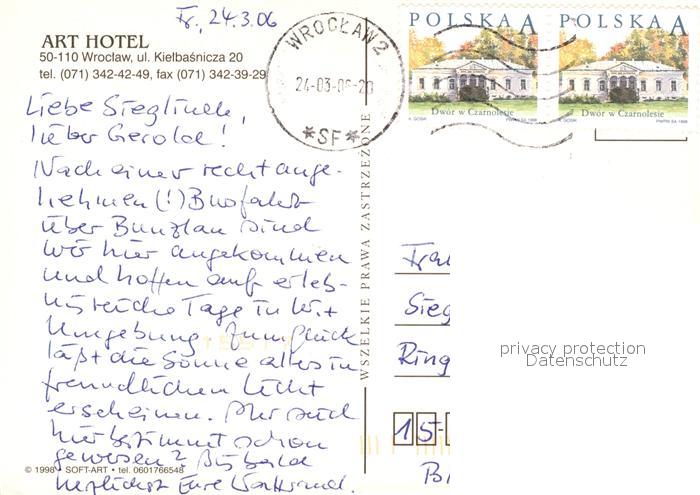 Fr., 24.3.06
ART HOTEL
50-110 Wrocław, ul. Kiełbaśnicza 20
tel. (071) 342-42-49, fax (071) 342-39-29
WROCŁAW 2
24-03-06-20
*SF*
POLSKA A
Dwór w Czarnolesie
POLSKA A
Dwór w Czarnolesie
Liebe Sieglinde,
lieber Gerold!
Nach einer recht ange-
nehmen (!) Busfahrt
über Bunzlau sind
wir hier angekommen
und hoffen auf erleb-
nisreiche Tage in W. +
Umgebung. Zum Glück
läßt die Sonne alles in
freundlichem Licht
erscheinen. Ihr seid
hier bestimmt schon
gewesen? Bis bald
herzlichst Eure
WSZELKIE PRAWA ZASTRZEŻONE
Frau
Sieg
Ring
15-
privacy protection
Datenschutz
© 1998 • SOFT-ART • tel. 0601766548